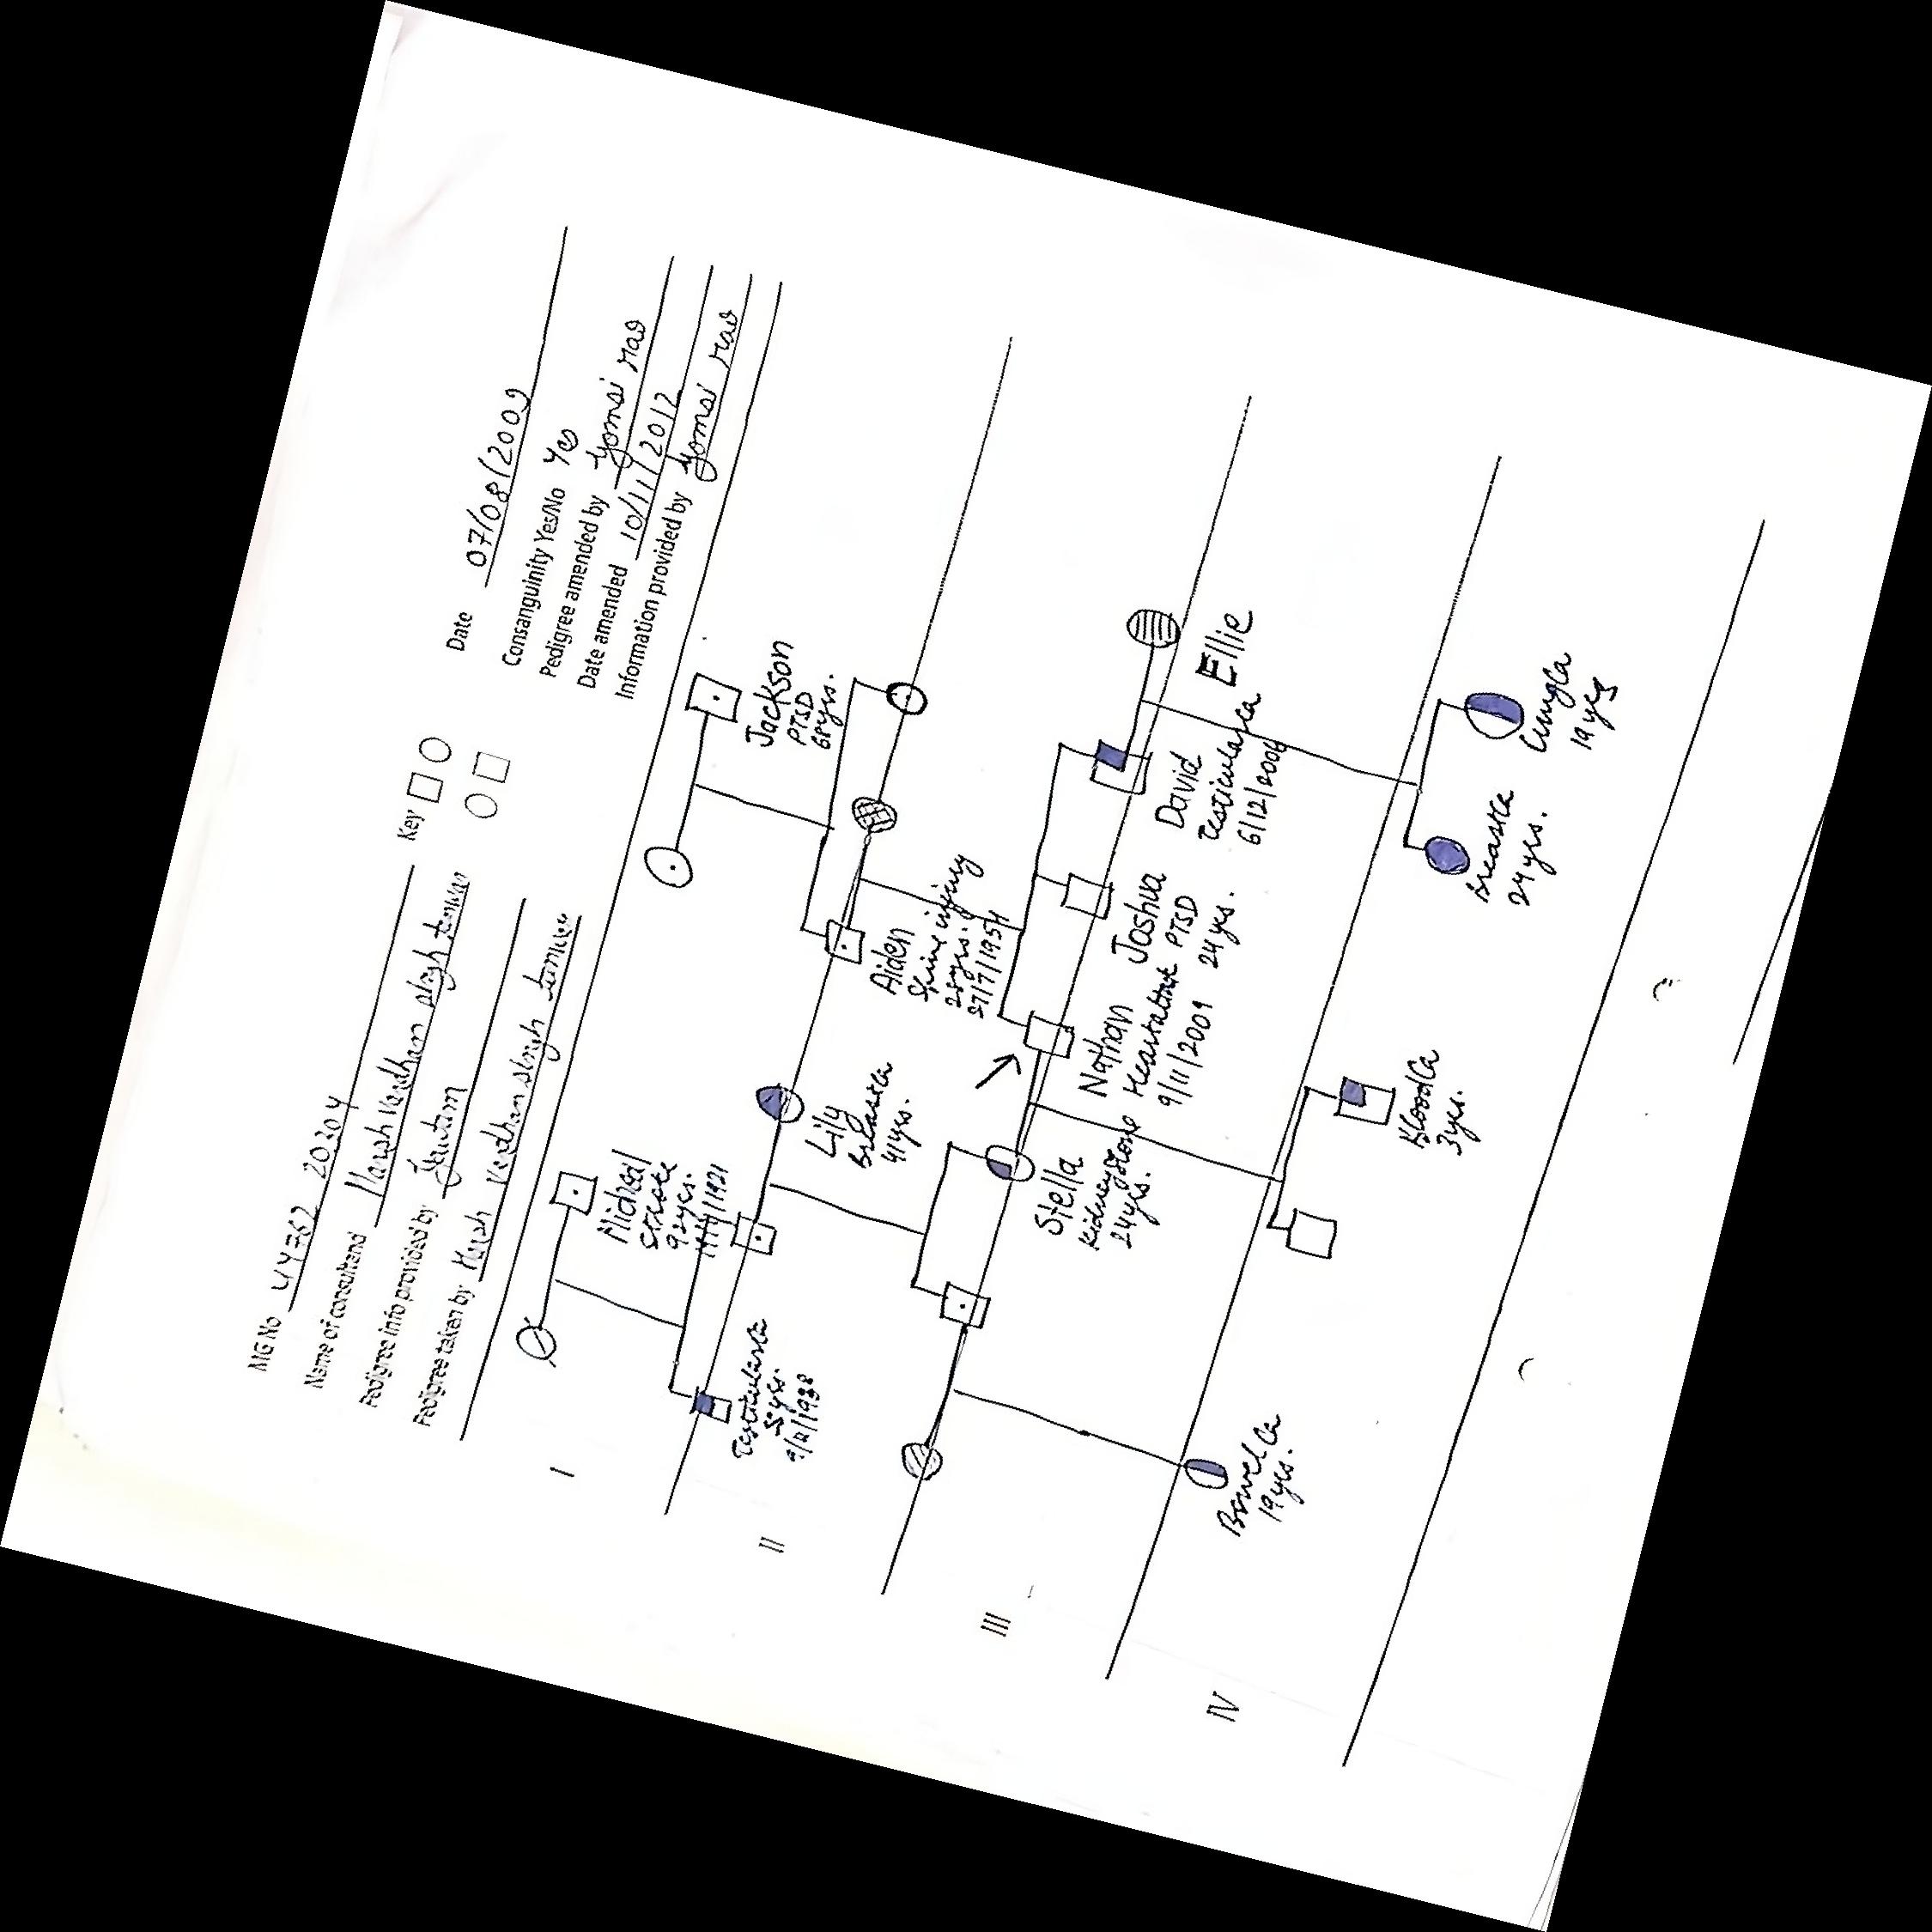 MG No 44762 20204
Name of consultand Harsh Vardhan singh tanwar
Pedigree info provided by Gautam
Pedigree taken by Harsh Vardhan singh tanwar
Key
Date 07/08/2009
Consanguinity Yes/No Yes
Pedigree amended by Yomai rao
Date amended 10/11/2012
Information provided by Yomai rao
I
Michael
stroke
92yrs.
Jackson
PTSD
68yrs.
II
Testicularca
55yrs.
Lily
Breastca
41yrs.
Aiden
Spine injury
28yrs.
27/7/1954
III
Stella
kidneystone
24yrs.
Nathan
Heartattack
9/11/2009
Joshua
PTSD
24yrs.
David
Testicularca
6/12/2004
Ellie
IV
Bowelca
19yrs.
Bloodca
3yrs.
Breastca
24yrs.
Lungca
19yrs